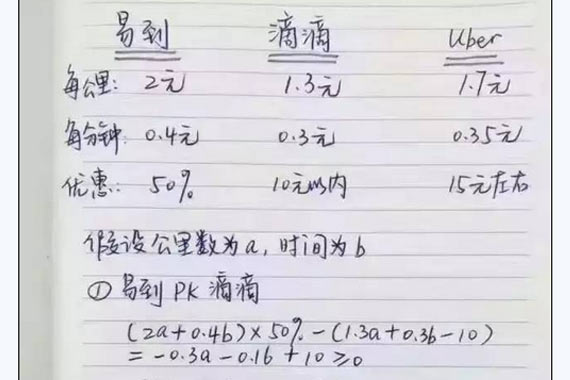 易到 滴滴 Uber
每公里: 2元 1.3元 1.7元
每分钟: 0.4元 0.3元 0.35元
优惠: 50% 10元以内 15元左右
假设公里数为a,时间为b
① 易到 PK 滴滴
(2a+0.4b)×50%-(1.3a+0.3b-10)
=-0.3a-0.1b+10≥0